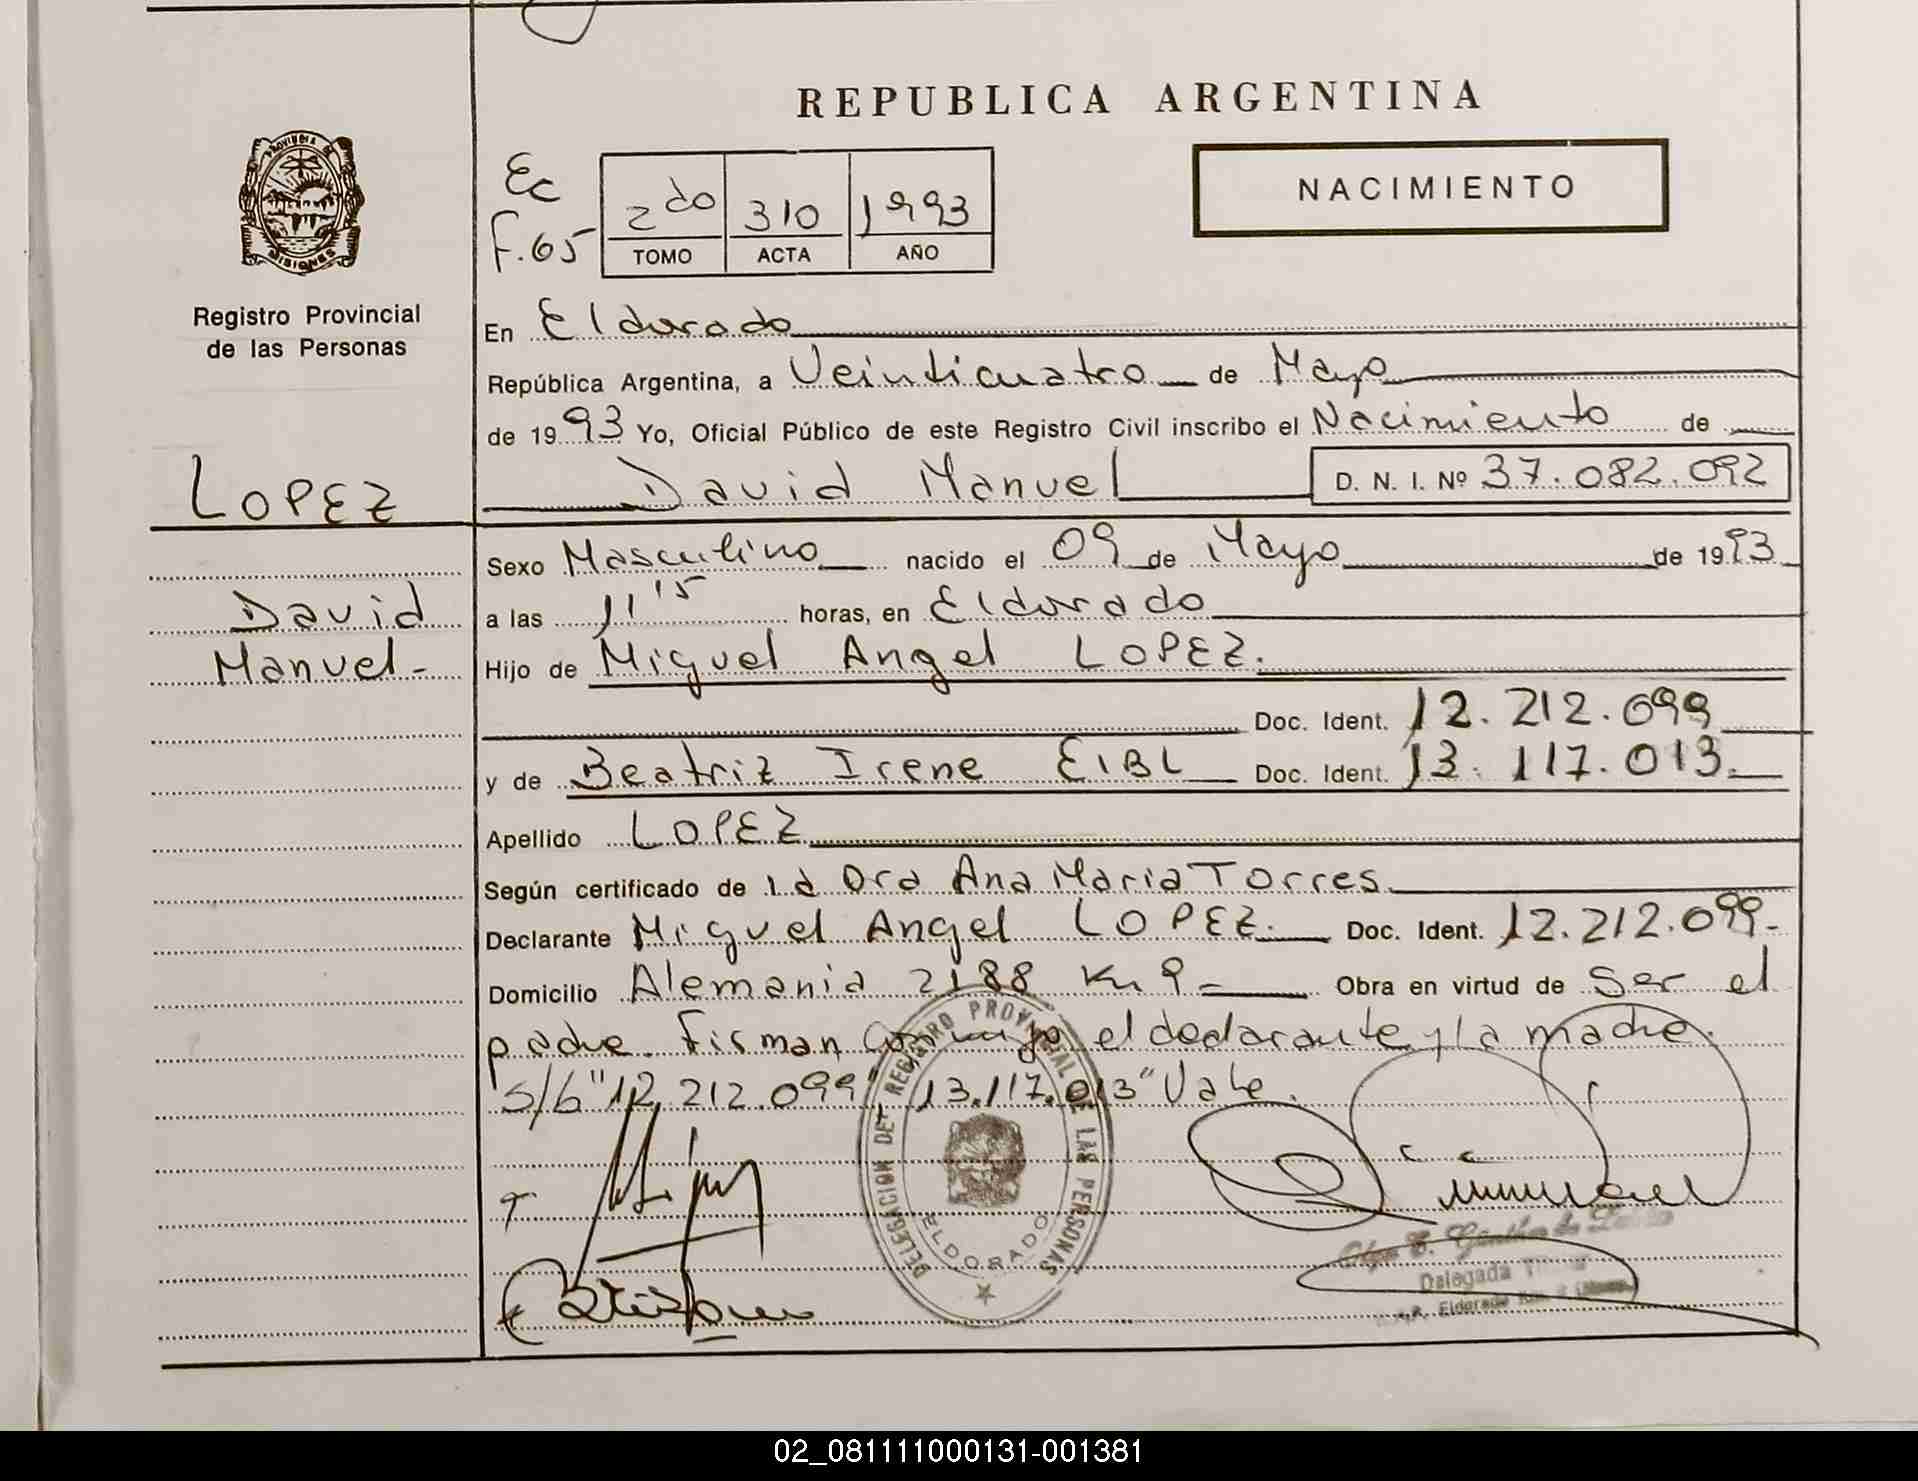 REPUBLICA ARGENTINA
PROVINCIA DE MISIONES
Registro Provincial
de las Personas
Ec
F.65
2do 310 1993
TOMO ACTA AÑO
NACIMIENTO
En Eldorado
República Argentina, a Veinticuatro de Mayo
de 1993 Yo, Oficial Público de este Registro Civil inscribo el Nacimiento de
David Manuel D. N. I. Nº 37.082.092
LOPEZ
David
Manuel-
Sexo Masculino nacido el 09 de Mayo de 1993
a las 11'15 horas, en Eldorado
Hijo de Miguel Angel LOPEZ.
Doc. Ident. 12.212.099
y de Beatriz Irene EIBL Doc. Ident. 13.117.013.
Apellido LOPEZ
Según certificado de la Dra Ana Maria Torres.
Declarante Miguel Angel LOPEZ. Doc. Ident. 12.212.099-
Domicilio Alemania 2188 Km 9 Obra en virtud de ser el
padre. Firman conmigo el declarante y la madre.
S/b "12.212.099" "13.117.013" Vale.
DELEGACION DEL REGISTRO PROVINCIAL DE LAS PERSONAS
ELDORADO
Delegada
Eldorado
02_081111000131-001381